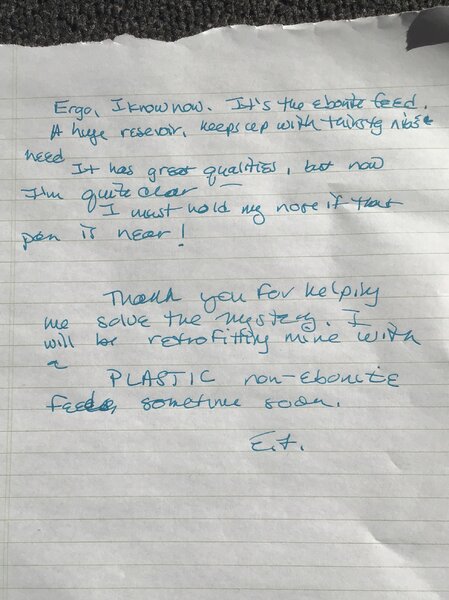 Ergo, I know now. It's the ebonite feed.
A huge resevoir, keeps up with thirsty nibs
need
It has great qualities, but now
I'm quite clear
I must hold my nose if that
pen is near!
Thank you for helping
me solve the mystery. I
will be retrofitting mine with
a
PLASTIC non-ebonite
feed, sometime soon.
E.T.